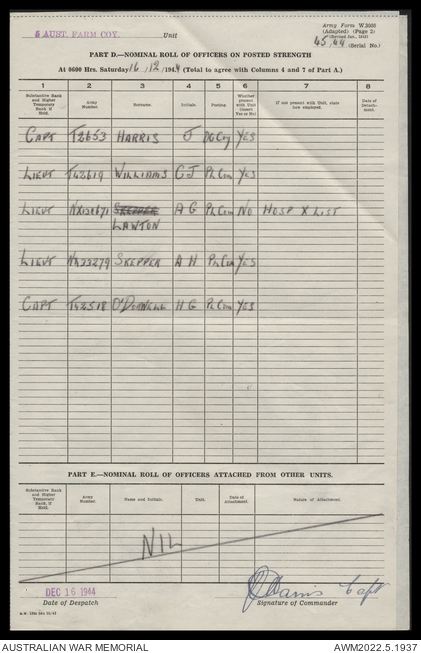 Army Form W.3008
(Adapted) (Page 2)
(Revised Jan., 1943)
5 AUST. FARM COY. Unit
45/44 (Serial No.)
PART D.—NOMINAL ROLL OF OFFICERS ON POSTED STRENGTH
At 0600 Hrs. Saturday 16/12/1944 (Total to agree with Columns 4 and 7 of Part A.)
1 2 3 4 5 6 7 8
Substantive Rank and Higher Temporary Rank if Held. Army Number. Surname. Initials. Posting. Whether present with Unit (insert Yes or No) If not present with Unit, state how employed. Date of Detachment.
CAPT HARRIS J YES
LIEUT WILLIAMS CJ Pl Com YES
LIEUT SKEPPER A G Pl Com NO HOSP X LIST
LAWTON
LIEUT SKEPPER A H Pl Com YES
CAPT O'DONNELL H G Pl Com YES
PART E.—NOMINAL ROLL OF OFFICERS ATTACHED FROM OTHER UNITS.
Substantive Rank and Higher Temporary Rank, if Held. Army Number. Name and Initials. Unit. Date of Attachment. Nature of Attachment.
NIL
DEC 16 1944
Date of Despatch
Harris Capt
Signature of Commander
AUSTRALIAN WAR MEMORIAL AWM2022.5.1937